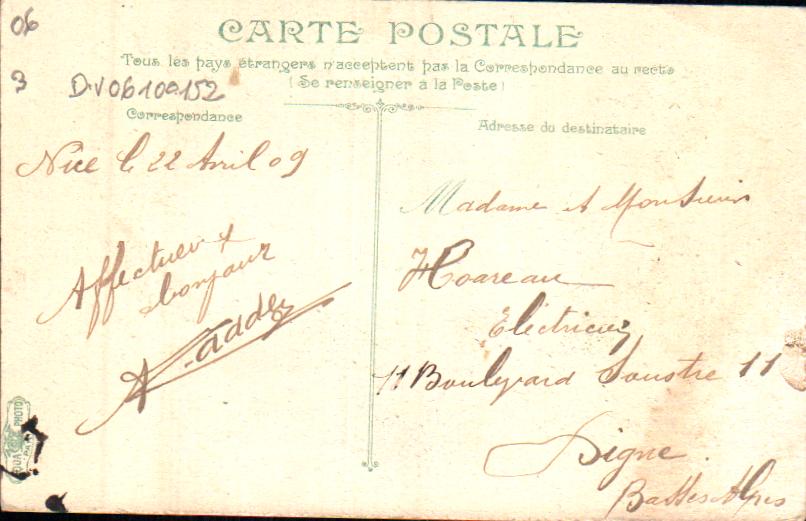 06
3
D.V06100152
CARTE POSTALE
Tous les pays étrangers n'acceptent pas la Correspondance au recto
(Se renseigner à la Poste)
Correspondance
Adresse du destinataire
Nice le 22 Avril 09
Affectueux
bonjour
Madame et Monsieur
Hoareau
Electricien
11 Boulevard Soustre 11
Digne
Basses Alpes
PHOTO